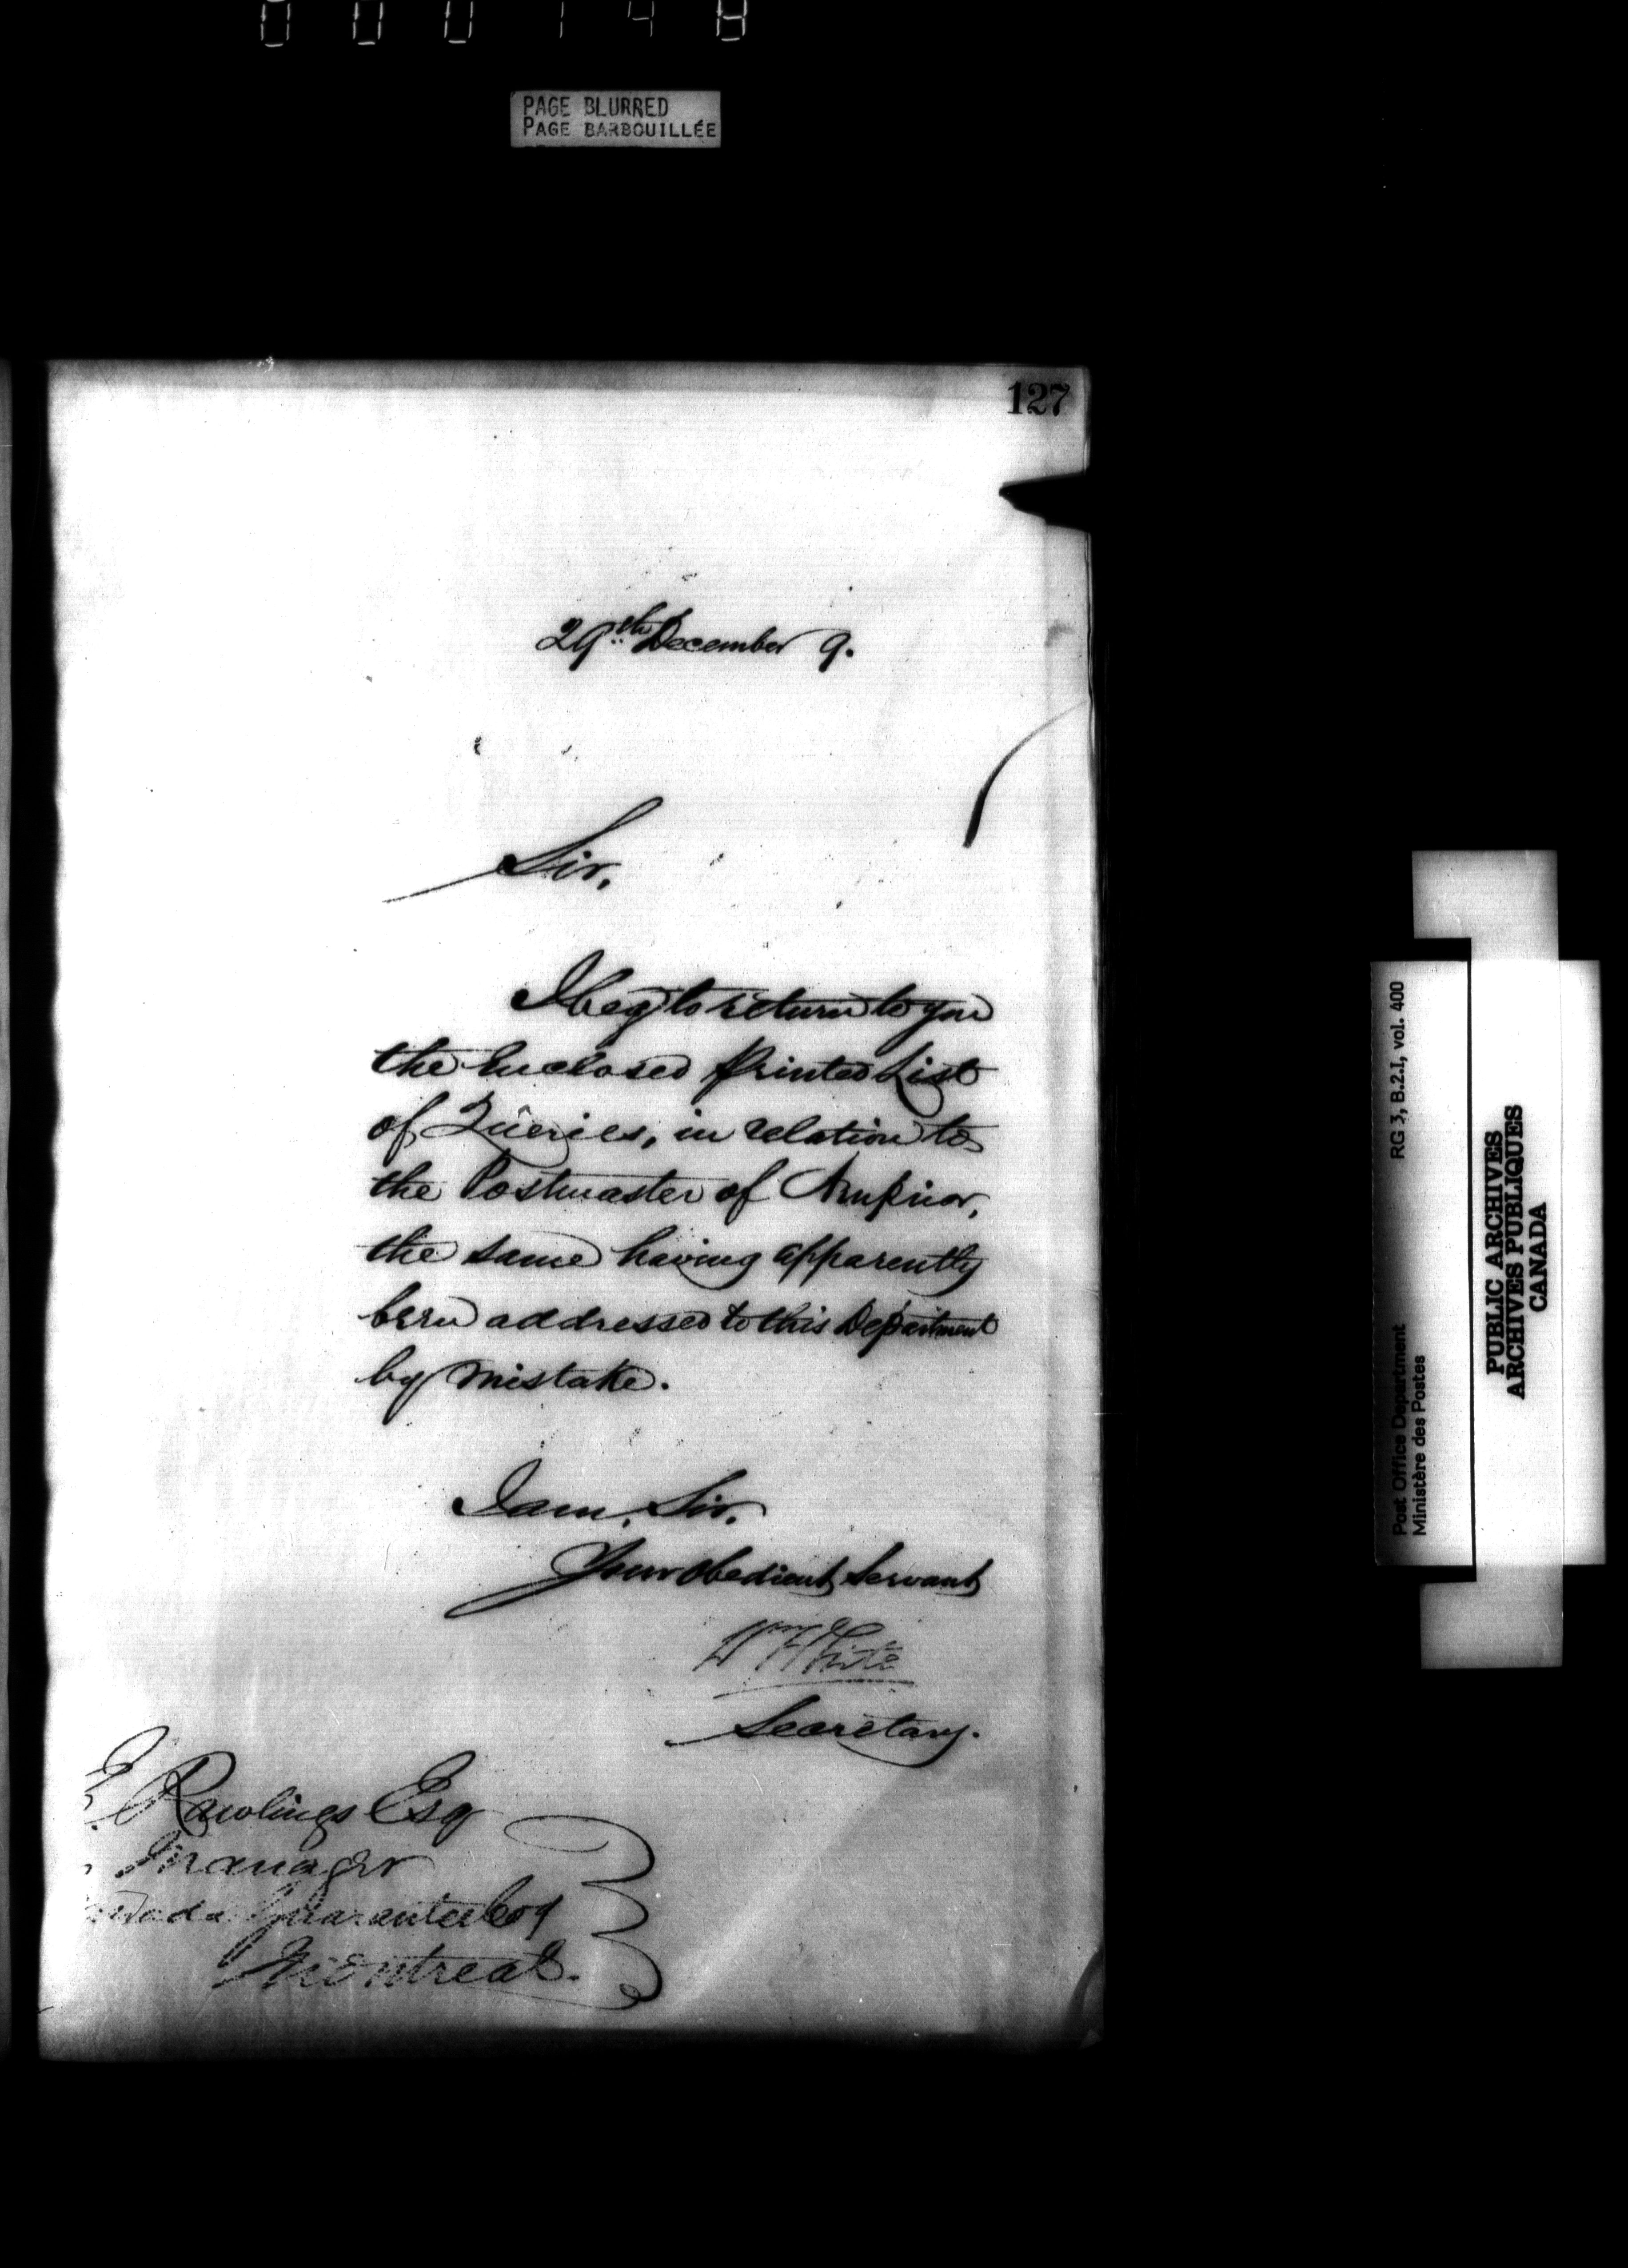 000148
PAGE BLURRED
PAGE BARBOUILLÉE
127
29th December 9.
Sir,
I beg to return to you
the enclosed Printed List
of Queries, in relation to
the Postmaster of Arnprior,
the same having apparently
been addressed to this Department
by mistake.
I am, Sir,
Your obedient Servant
Wm White
Secretary.
E Rawlings Esq
Manager
Guarantee Coy
Montreal.
Post Office Department RG 3, B.2.I, vol. 400
Ministère des Postes
PUBLIC ARCHIVES
ARCHIVES PUBLIQUES
CANADA